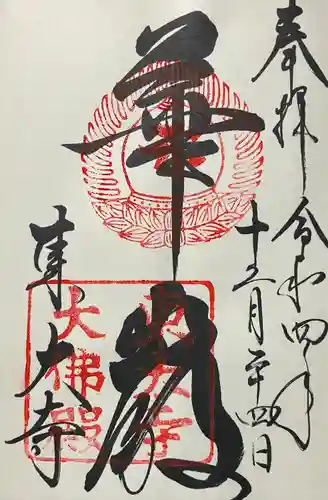 奉拝
令和四年
十二月二十四日
華厳
東大寺
東大寺
大佛殿